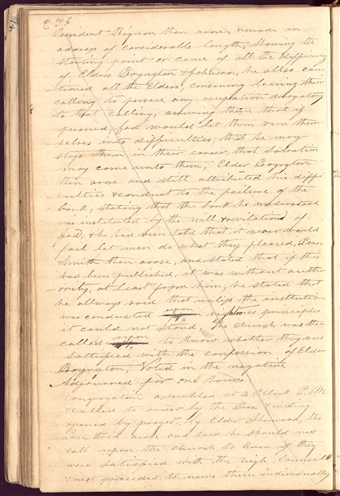 276
President Rigdon then arose, & made an
address of considerable length, showing the
starting point or cause of all the difficulty
of Elders Boynton & Johnson, he also cau-
tioned all the Elders, concerning leaving their
calling to persue any occupation derogatory
to that calling, assuring them that if
persued, God would let them run them
selves into difficulties, that he may
stop them in their career, that salvation
may come unto them, Elder Boynton
then arose and still attributed his diffi-
culties & conduct to the failure of the
bank, stating that the bank he understood
was instituted by the will & revelations of
God, & he had been told that it never would
fail let men do what they pleased, Pres.
Smith then arose, and stated that if this
had been published, it was without auth-
ority, at least from him, he stated that
he allways said that unless the institution
was conducted upon righteous principles
it could not stand, The church was then
called to know whether they were
sattisfied with the confession of Elder
Boynton, Voted in the negative
Adjourned for one hour
Congregation assembled at 2 Oclock P.M.
& called to order by the
opened by prayer, by Elder the
then arose and said he should next
call upon the church to know if they
were satisfied with the high Council
& next proceeded to name them individually